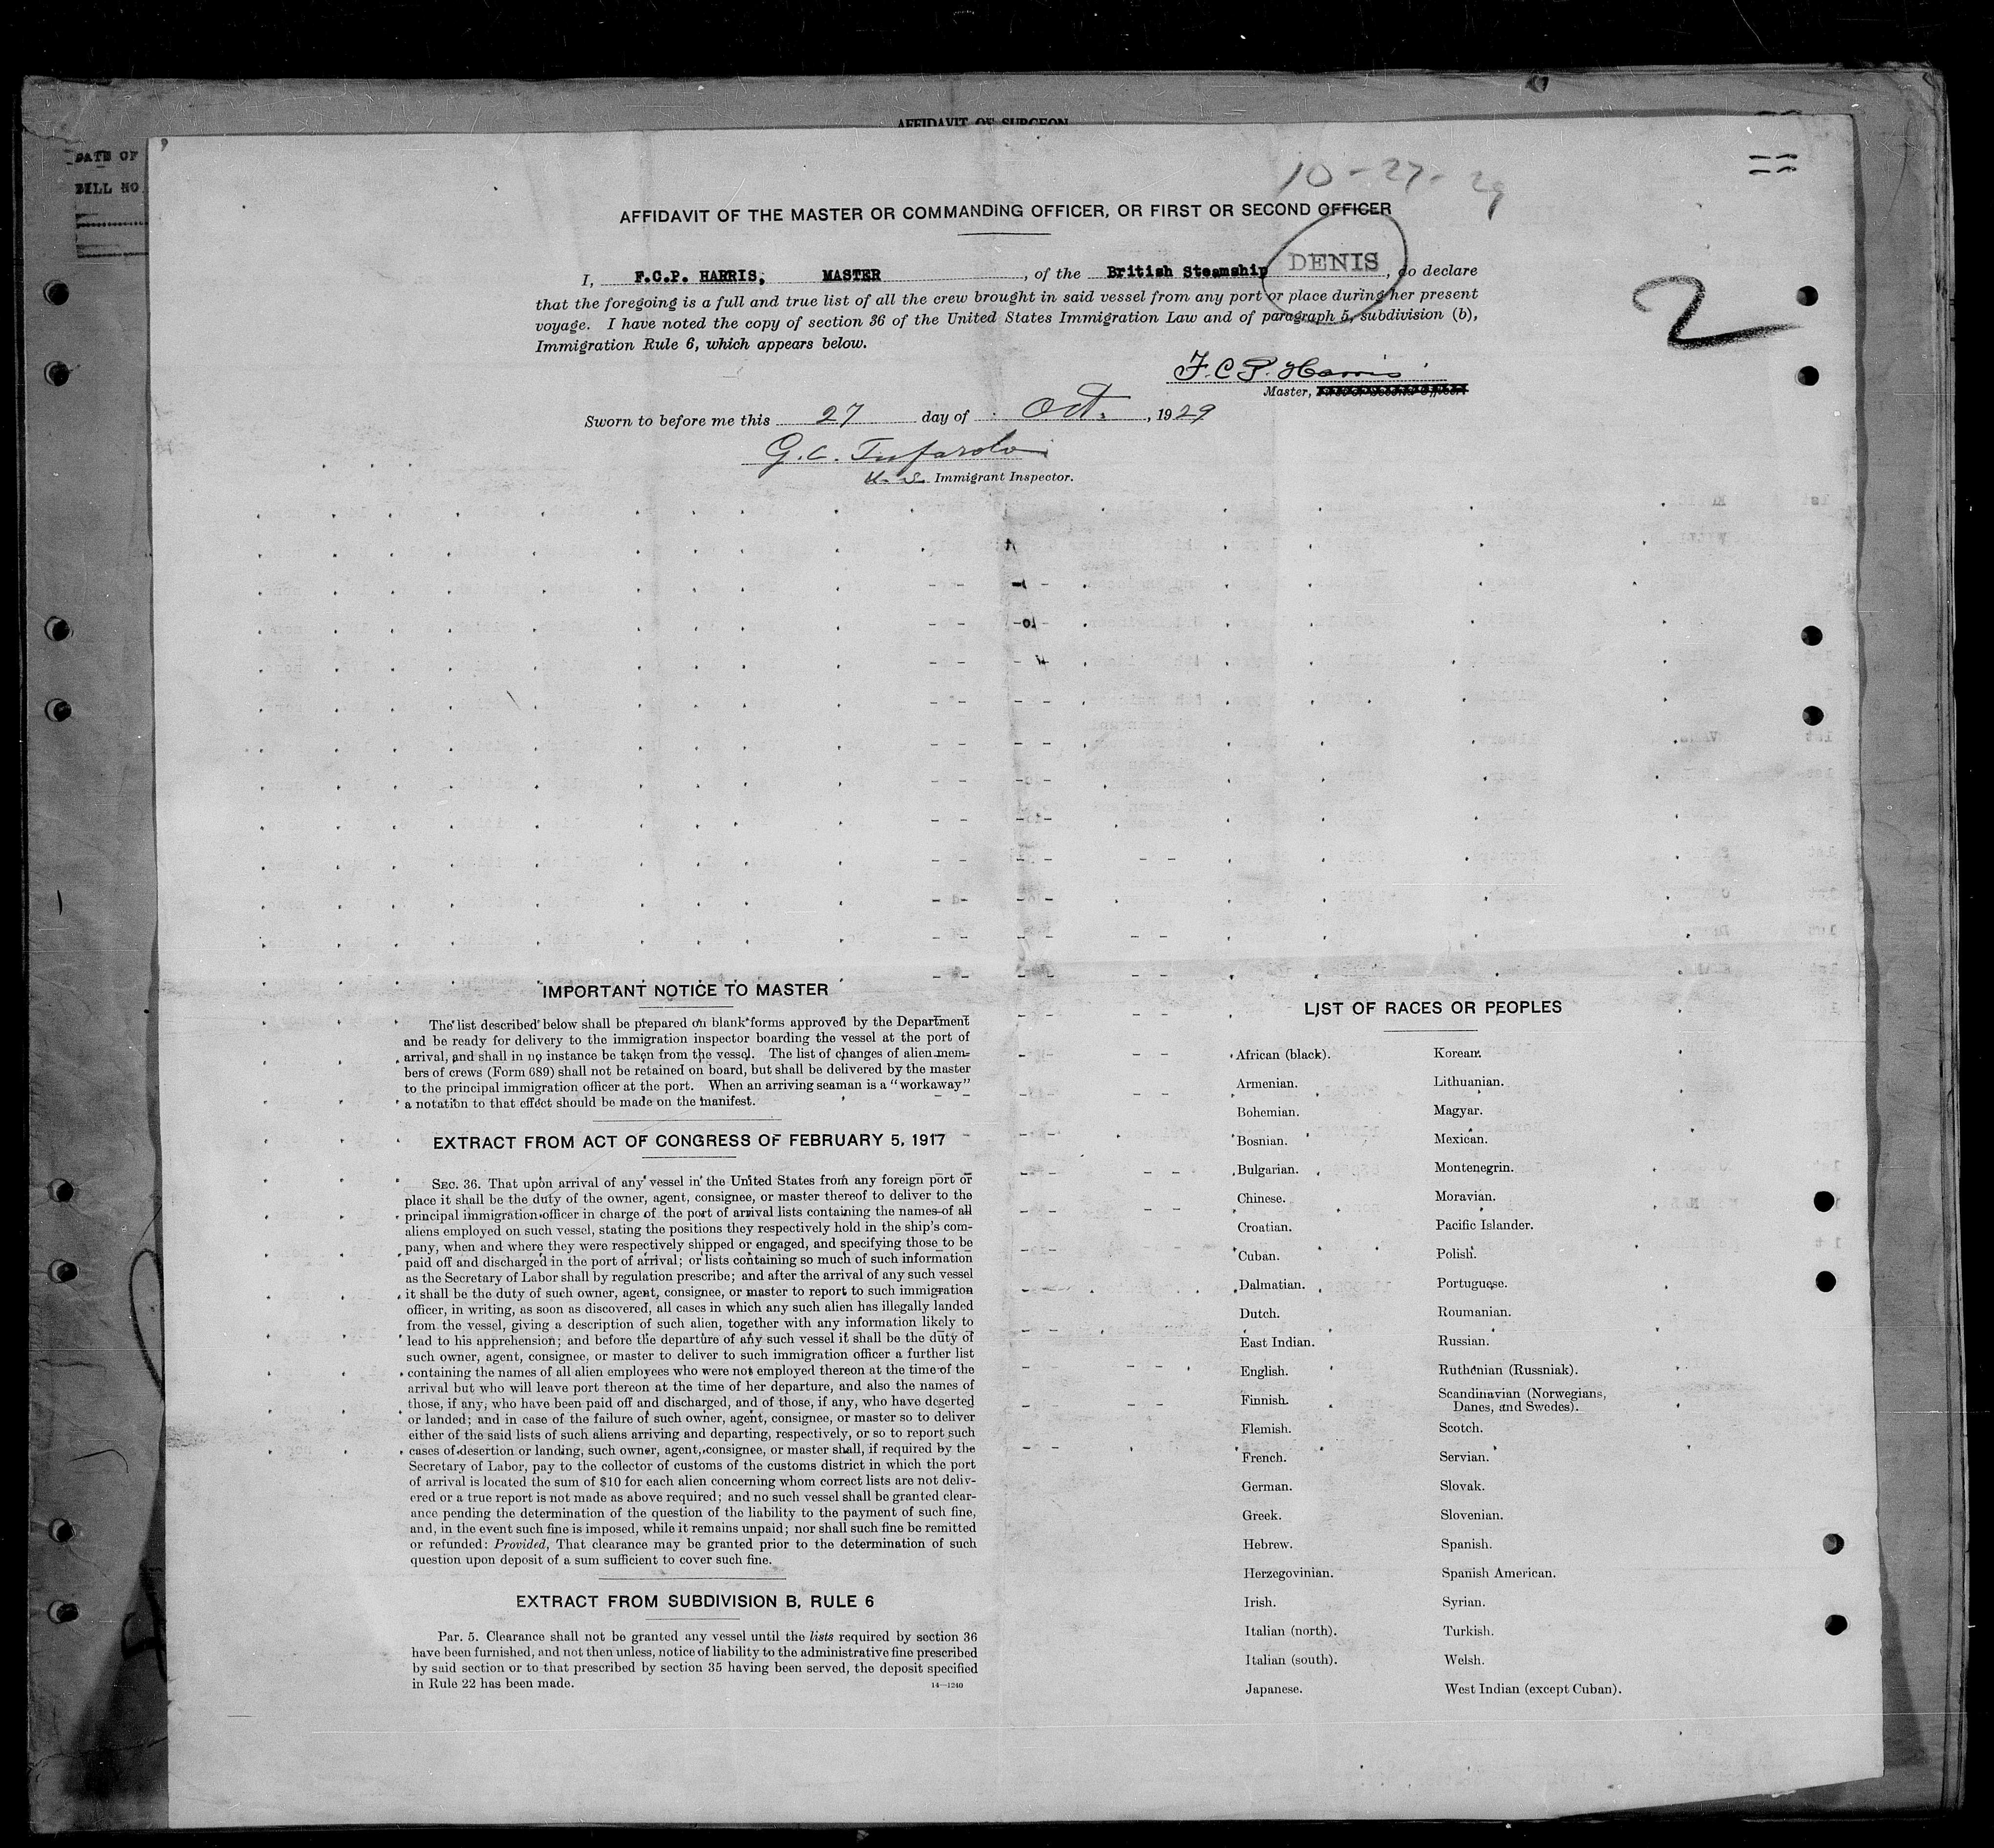 AFFIDAVIT OF SURGEON
DATE OF
BILL NO
10-27-29
AFFIDAVIT OF THE MASTER OR COMMANDING OFFICER, OR FIRST OR SECOND OFFICER
I, F.C.P. HARRIS, MASTER, of the British Steamship DENIS, do declare
that the foregoing is a full and true list of all the crew brought in said vessel from any port or place during her present
voyage. I have noted the copy of section 36 of the United States Immigration Law and of paragraph 5, subdivision (b),
Immigration Rule 6, which appears below.
2
F. C P. Harris
Master,
Sworn to before me this 27 day of Oct., 1929
G. C.
U. S. Immigrant Inspector.
IMPORTANT NOTICE TO MASTER
The list described below shall be prepared on blank forms approved by the Department
and be ready for delivery to the immigration inspector boarding the vessel at the port of
arrival, and shall in no instance be taken from the vessel. The list of changes of alien mem-
bers of crews (Form 689) shall not be retained on board, but shall be delivered by the master
to the principal immigration officer at the port. When an arriving seaman is a "workaway"
a notation to that effect should be made on the manifest.
EXTRACT FROM ACT OF CONGRESS OF FEBRUARY 5, 1917
SEC. 36. That upon arrival of any vessel in the United States from any foreign port or
place it shall be the duty of the owner, agent, consignee, or master thereof to deliver to the
principal immigration officer in charge of the port of arrival lists containing the names of all
aliens employed on such vessel, stating the positions they respectively hold in the ship's com-
pany, when and where they were respectively shipped or engaged, and specifying those to be
paid off and discharged in the port of arrival; or lists containing so much of such information
as the Secretary of Labor shall by regulation prescribe; and after the arrival of any such vessel
it shall be the duty of such owner, agent, consignee, or master to report to such immigration
officer, in writing, as soon as discovered, all cases in which any such alien has illegally landed
from the vessel, giving a description of such alien, together with any information likely to
lead to his apprehension; and before the departure of any such vessel it shall be the duty of
such owner, agent, consignee, or master to deliver to such immigration officer a further list
containing the names of all alien employees who were not employed thereon at the time of the
arrival but who will leave port thereon at the time of her departure, and also the names of
those, if any, who have been paid off and discharged, and of those, if any, who have deserted
or landed; and in case of the failure of such owner, agent, consignee, or master so to deliver
either of the said lists of such aliens arriving and departing, respectively, or so to report such
cases of desertion or landing, such owner, agent, consignee, or master shall, if required by the
Secretary of Labor, pay to the collector of customs of the customs district in which the port
of arrival is located the sum of $10 for each alien concerning whom correct lists are not deliv-
ered or a true report is not made as above required; and no such vessel shall be granted clear-
ance pending the determination of the question of the liability to the payment of such fine,
and, in the event such fine is imposed, while it remains unpaid; nor shall such fine be remitted
or refunded: Provided, That clearance may be granted prior to the determination of such
question upon deposit of a sum sufficient to cover such fine.
EXTRACT FROM SUBDIVISION B, RULE 6
Par. 5. Clearance shall not be granted any vessel until the lists required by section 36
have been furnished, and not then unless, notice of liability to the administrative fine prescribed
by said section or to that prescribed by section 35 having been served, the deposit specified
in Rule 22 has been made.
14—1240
LIST OF RACES OR PEOPLES
African (black).
Armenian.
Bohemian.
Bosnian.
Bulgarian.
Chinese.
Croatian.
Cuban.
Dalmatian.
Dutch.
East Indian.
English.
Finnish.
Flemish.
French.
German.
Greek.
Hebrew.
Herzegovinian.
Irish.
Italian (north).
Italian (south).
Japanese.
Korean.
Lithuanian.
Magyar.
Mexican.
Montenegrin.
Moravian.
Pacific Islander.
Polish.
Portuguese.
Roumanian.
Russian.
Ruthenian (Russniak).
Scandinavian (Norwegians,
Danes, and Swedes).
Scotch.
Servian.
Slovak.
Slovenian.
Spanish.
Spanish American.
Syrian.
Turkish.
Welsh.
West Indian (except Cuban).